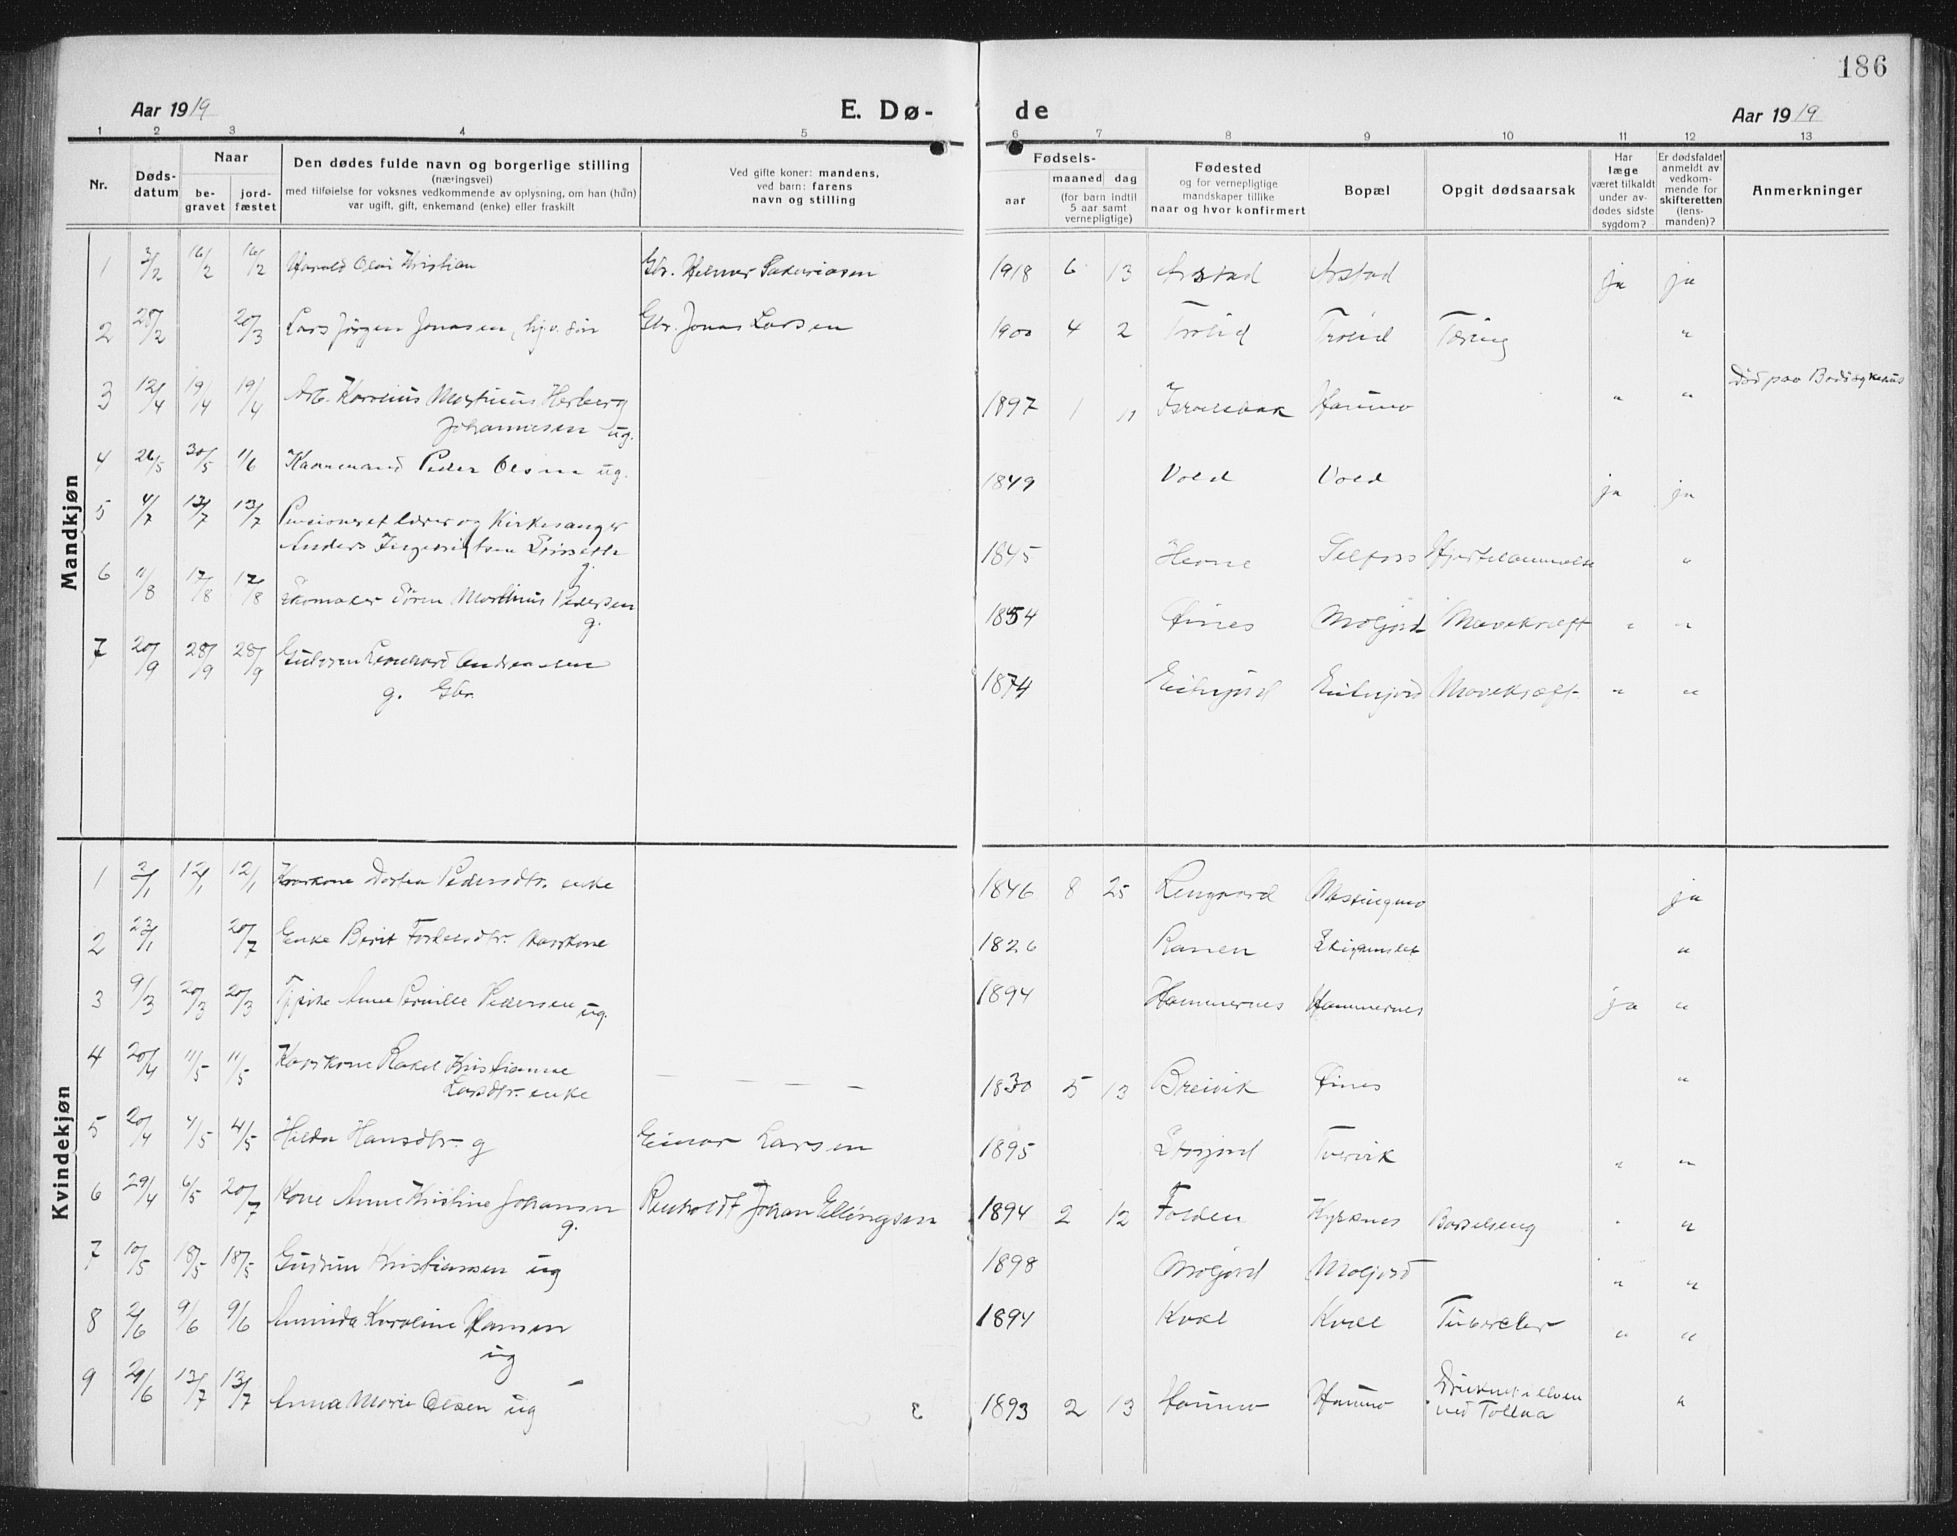 186
Aar 1919 E. Dø- de Aar 1919
1 2 3 4 5 6 7 8 9 10 11 12 13
Nr.
Døds-
datum
Naar
be-
gravet
jord-
fæstet
Den dødes fulde navn og borgerlige stilling
(næringsvei)
med tilføielse for voksnes vedkommende av oplysning, om han (hun)
var ugift, gift, enkemand (enke) eller fraskilt
Ved gifte koner: mandens,
ved barn: farens
navn og stilling
Fødsels-
aar
maaned dag
(for barn indtil
5 aar samt
vernepligtige)
Fødested
og for vernepligtige
mandskaper tillike
naar og hvor konfirmert
Bopæl
Opgit dødsaarsak
Har
læge
været tilkaldt
under av-
dødes sidste
sygdom?
Er dødsfaldet
anmeldt av
vedkom-
mende for
skifteretten
(lens-
manden)?
Anmerkninger
Mandkjøn
1 3/2 16/2 16/2 Harald Olai Kristian Gbr. Helmer Sakariasen 1918 6 13 Arstad Arstad ja ja
2 28/2 20/3 Lars Jørgen Jonasen, hjv. søn Gbr. Jonas Larsen 1900 4 2 Trolid Trolid Tæring "
3 12/4 19/4 19/4 Arb. Karelius Martinus Herberg
Johannesen ug. 1897 1 11 Israelsbak Haumo " " Død paa Bodø sykehus
4 26/5 30/5 1/6 Kaarmand Peder Olsen ug. 1849 Vold Vold ja ja
5 4/7 13/7 13/7 Pensioneret lærer og Kirkesanger
Anders Ingebrigtsen
g. 1845 Hevne Selfors "
6 11/8 17/8 17/8 Skomaker Søren Marthinus Pedersen
g. 1854 Øines Moljord Mavekræft " "
7 20/9 28/9 28/9 Leonhard Andreassen
g. Gbr. 1874 Eilivjord Eilivjord Mavekræft " "
Kvindekjøn
1 3/1 12/1 12/1 Kaarkone Dortea Pedersdtr. enke 1846 8 25 Lengaard Messingmo ja
2 23/1 20/7 Enke Berit Kaarkone 1826 Ranen "
3 9/3 20/3 20/3 Tjpike Anne Pernille Pedersen ug. 1894 Hammernes Hammernes ja "
4 20/4 11/5 11/5 Kaarkone Rakel Kristianne
Larsdtr. enke — — — — 1830 5 13 Breivik Øines "
5 20/4 4/5 4/5 Hilda Hansdtr. g Einar Larsen 1895 Storjord Tvervik " "
6 29/4 6/5 20/7 Kone Anne Kristine Johansen
g. Renholdt Johan Ellingsen 1894 2 12 Folden Barselseng " "
7 10/5 18/5 18/5 Gudrun Kristiansen ug 1898 Moljord Moljord " "
8 2/6 9/6 9/6 Aminda Karoline Hansen
ug 1894 Kvæl Kvæl Tuberkler " "
9 29/6 13/7 13/7 Anna Marie Olsen ug 1893 2 13 Haumo Haumo Druknet i elven
ved Tollaa "